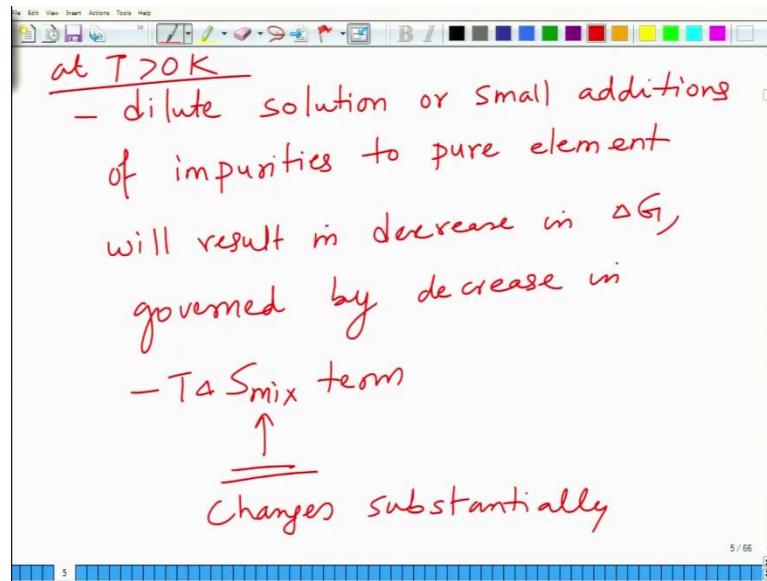 File Edit View Insert Actions Tools Help
at T>0K
- dilute solution or small additions
of impurities to pure element
will result in decrease in ΔG,
governed by decrease in
- TΔSmix term
↑
changes substantially
5/66
5